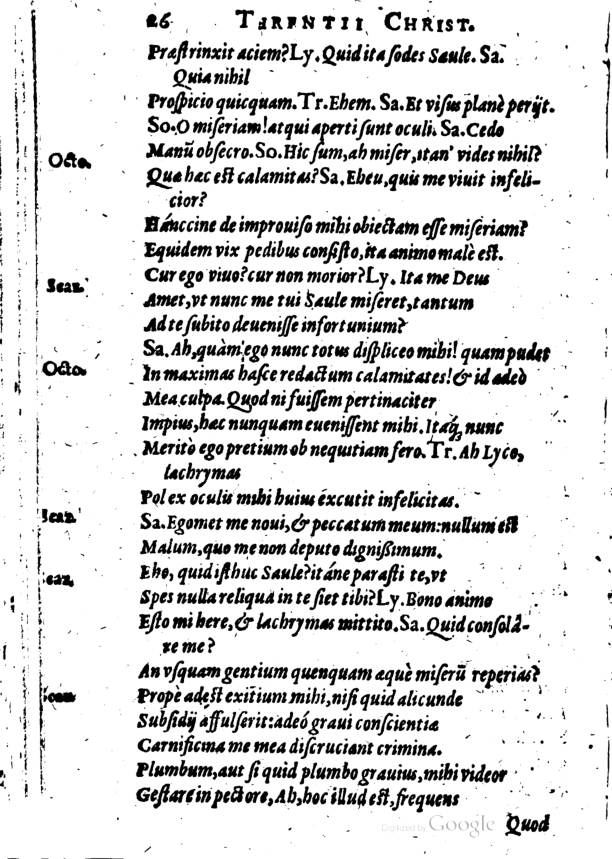 26 TERENTII CHRIST.
Præstrinxit aciem? Ly. Quid ita sodes Saule. Sa.
Quia nihil
Prospicio quicquam. Tr. Ehem. Sa. Et visus planè perijt.
So. O miseriam! atqui aperti sunt oculi. Sa. Cedo
Octo. Manū obsecro. So. Hic sum, ah miser, itan' vides nihil?
Quæ hæc est calamitas? Sa. Eheu, quis me viuit infeli-
cior?
Hánccine de improuiso mihi obiectam esse miseriam?
Equidem vix pedibus consisto, ita animo malè est.
Scaz. Cur ego viuo? cur non morior? Ly. Ita me Deus
Amet, vt nunc me tui Saule miseret, tantum
Ad te subito deuenisse infortunium?
Sa. Ah, quàm ego nunc totus displiceo mihi! quam pudet
Octo. In maximas hasce redactum calamitates! & id adeò
Mea culpa. Quod ni fuissem pertinaciter
Impius, hæc nunquam euenissent mihi. Itaq; nunc
Meritò ego pretium ob nequitiam fero. Tr. Ah Lyco,
lachrymas
Pol ex oculis mihi huius éxcutit infelicitas.
Scaz. Sa. Egomet me noui, & peccatum meum: nullum est
Malum, quo me non deputo dignißimum.
Eho, quid isthuc Saule? itáne parasti te, vt
Spes nulla reliqua in te siet tibi? Ly. Bono animo
Esto mi here, & lachrymas mittito. Sa. Quid consolá-
re me?
An vsquam gentium quenquam æquè miserū reperias?
Propè adest exitium mihi, nisi quid alicunde
Subsidij affulserit: adeó graui conscientiæ
Carnificina me mea discruciant crimina.
Plumbum, aut si quid plumbo grauius, mihi videor
Gestare in pectore, Ah, hoc illud est, frequens
Quod
Digitized by Google